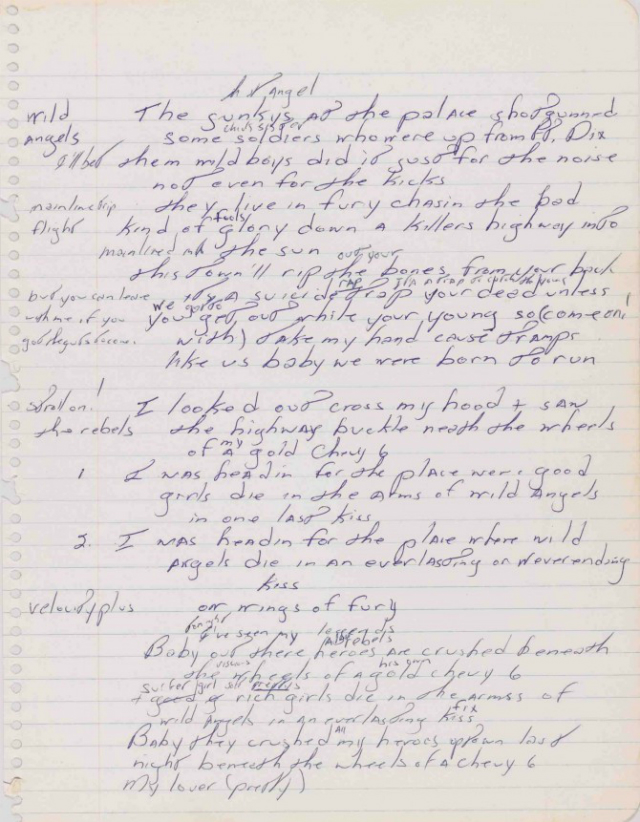 Angel
wild The junkys at the palace shotgunned
angels some soldiers who were up from Ft. Dix
I'll bet them wild boys did it just for the noise
not even for the kicks
they live in fury chasin the bad
flight kind of glory down a killers highway into
mainlined the sun
out your
this town'll rip the bones from your back
rap Its a trap to catch the young
but you can leave its a suicide trap your dead unless
we gotta
with me if you you get out while your young so (come on
got the guts with) take my hand cause tramps
like us baby we were born to run
stroll on! I looked out cross my hood + saw
the rebels the highway buckle neath the wheels
my
of a gold Chevy 6
1. I was headin for the place were good
girls die in the arms of wild Angels
in one last kiss
2. I was headin for the place where wild
Angels die in an everlasting or neverending
kiss
velocity plus on wings of fury
tonight
I've seen my legends
Baby out there heroes are crushed beneath
his own
the wheels of a gold chevy 6
+ good rich girls die in the armss of
fix
wild Angels in an everlasting kiss
all
Baby they crushed my heroes uptown last
night beneath the wheels of a Chevy 6
My lover (pretty)